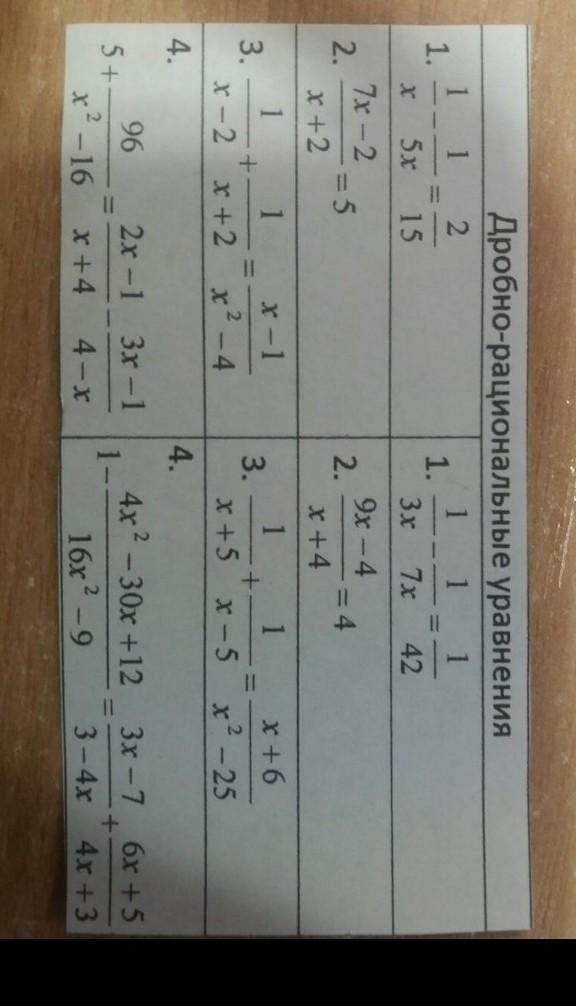 Дробно-рациональные уравнения
1. 1/x − 1/(5x) = 2/15
2. (7x − 2)/(x + 2) = 5
3. 1/(x − 2) + 1/(x + 2) = (x − 1)/(x² − 4)
4.
5 + 96/(x² − 16) = (2x − 1)/(x + 4) − (3x − 1)/(4 − x)
1. 1/(3x) − 1/(7x) = 1/42
2. (9x − 4)/(x + 4) = 4
3. 1/(x + 5) + 1/(x − 5) = (x + 6)/(x² − 25)
4.
1 − (4x² − 30x + 12)/(16x² − 9) = (3x − 7)/(3 − 4x) + (6x + 5)/(4x + 3)